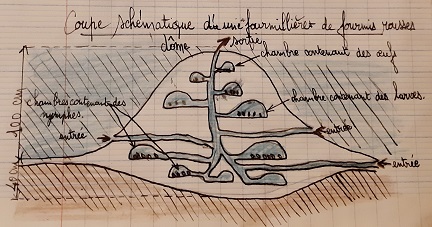 Coupe schématique d'une fourmillière de fourmis rousses
dôme
sortie
chambre contenant des œufs
chambres contenant des
nymphes.
chambre contenant des larves.
entrée
entrée
entrée
100 cm